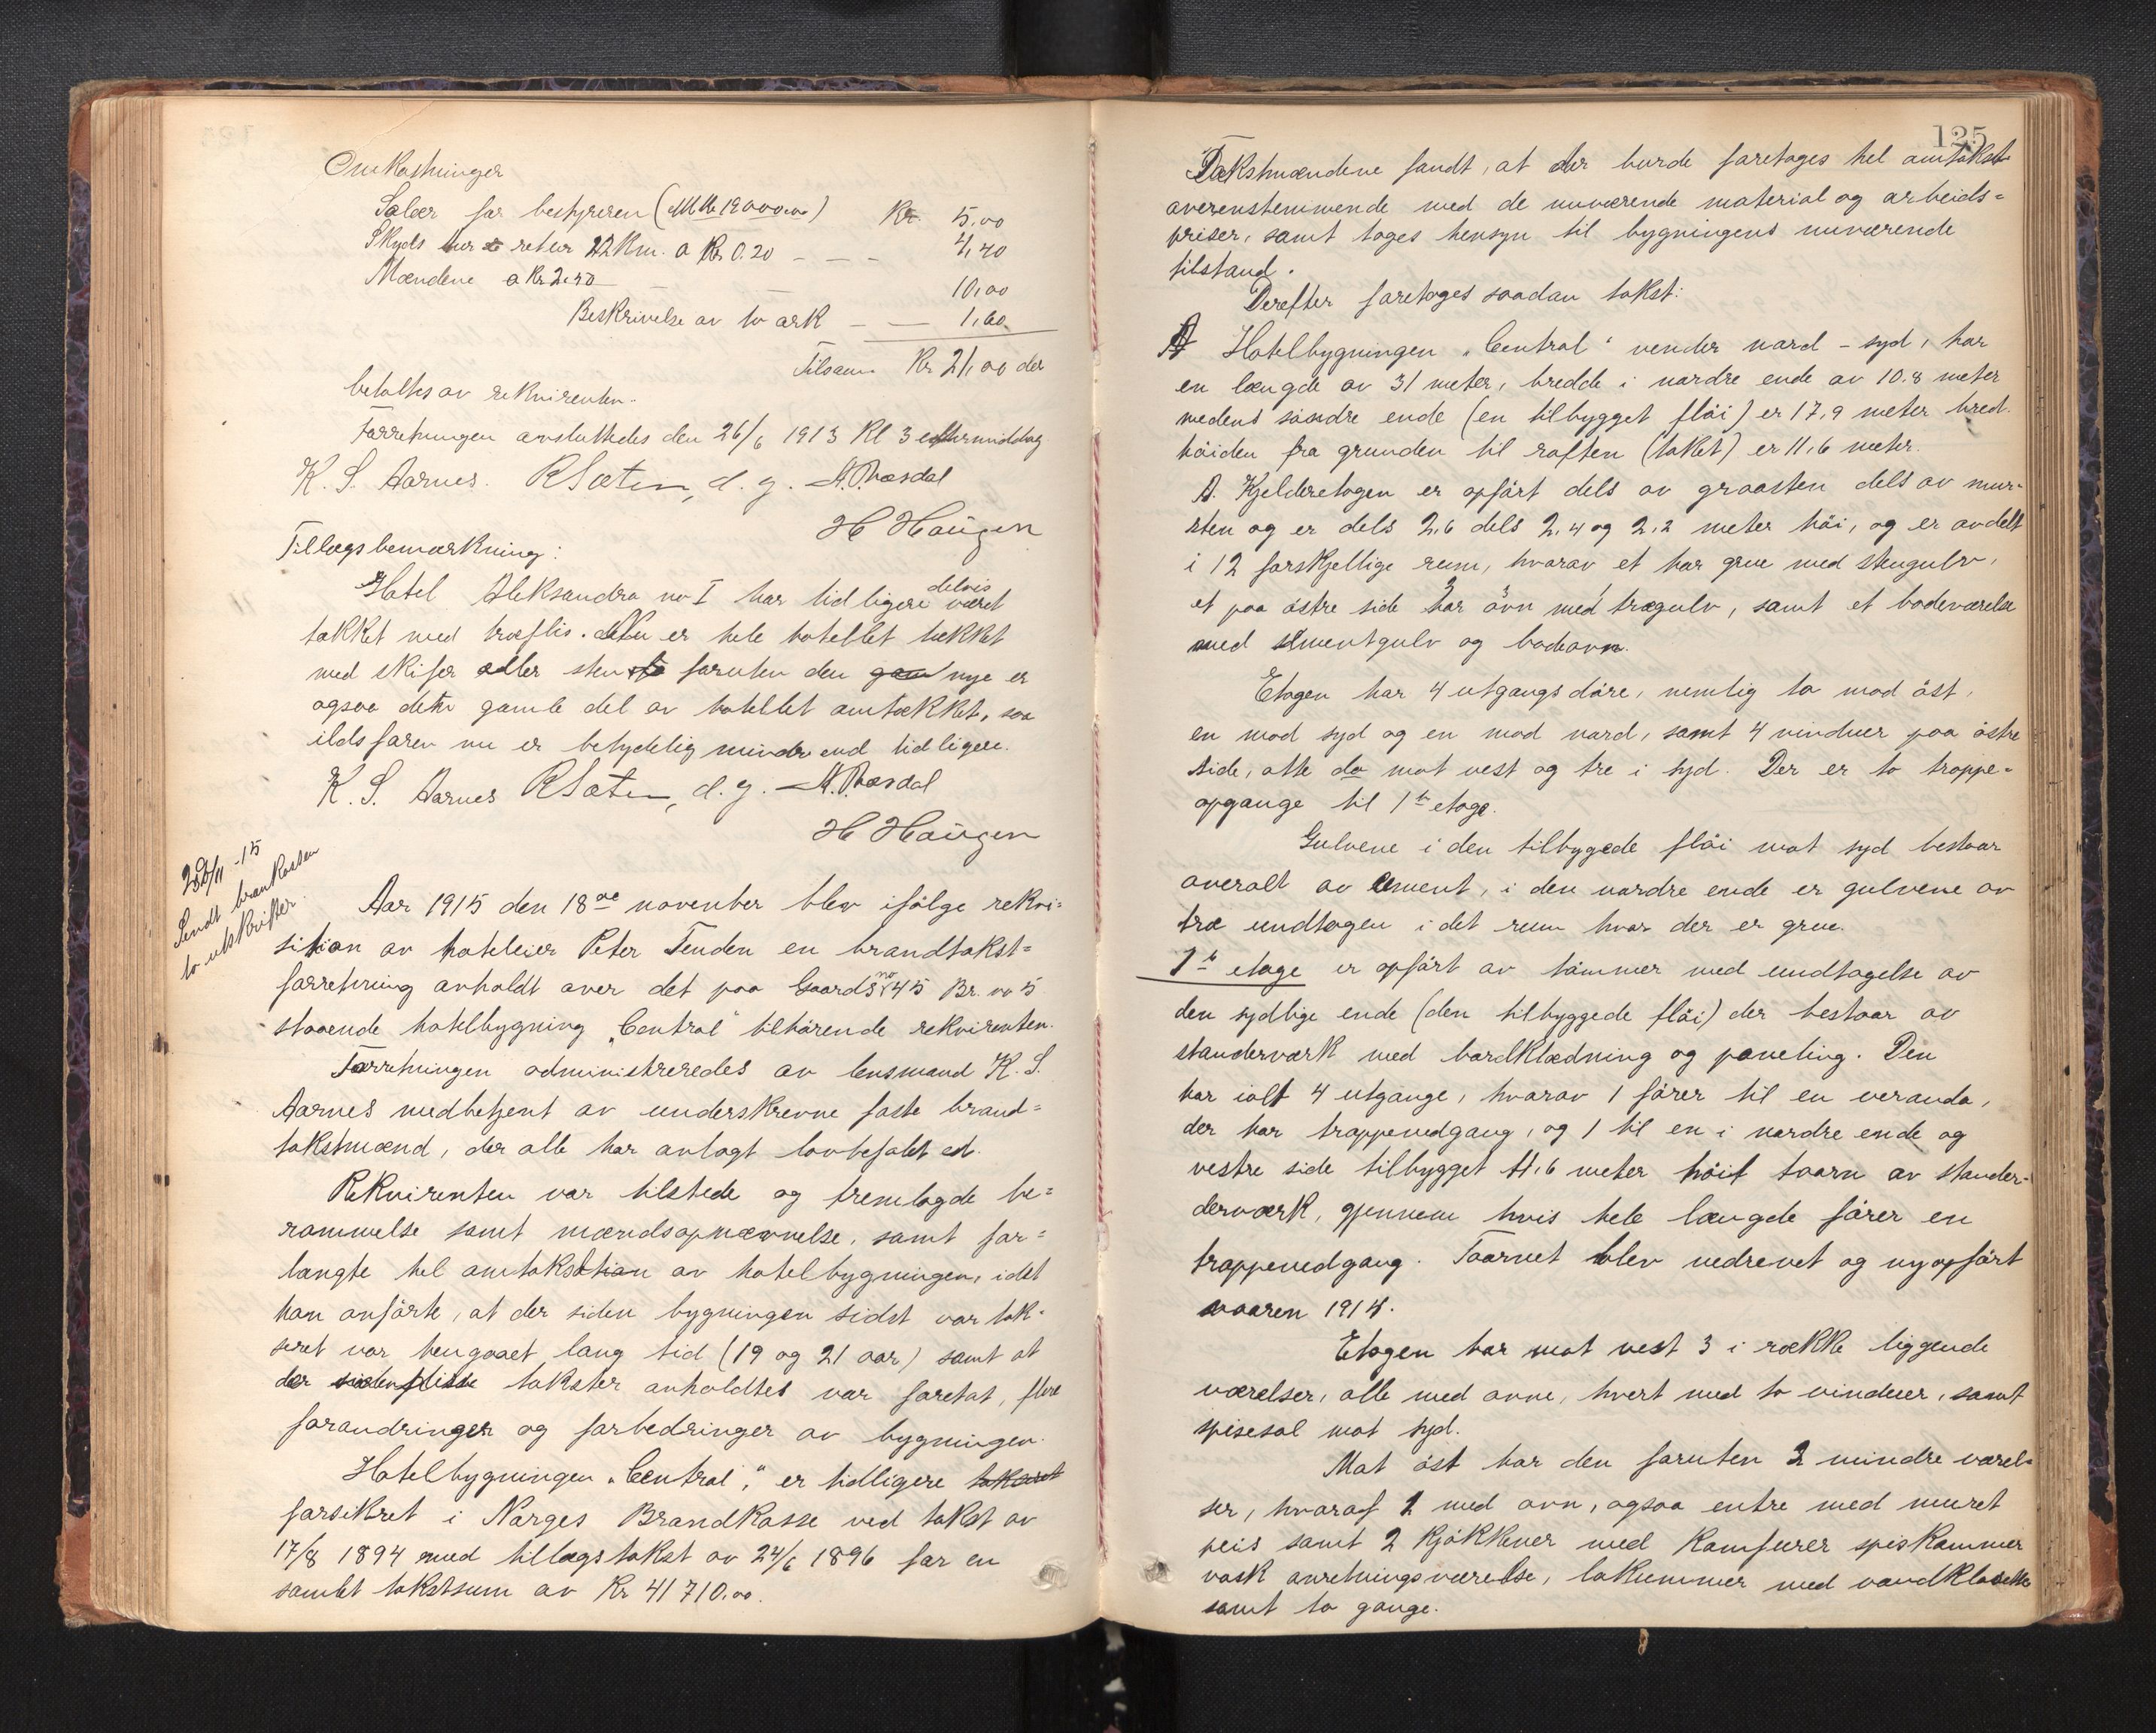 Omkostninger
Salær for bestyreren Kr. 5,00
Skyds tur &amp; retur 22 Km. a Kr 0.20 – – – 4,40
Mændene a Kr 2.50 10,00
Beskrivelse av to ark – – 1,60
Tilsam. Kr 21,00 der
betaltes av rekvirenten.
Forretningen avsluttedes den 26/6 1913 Kl 3 eftermiddag
K. S. Aarnes. R Sæten, d. y. A. Præsdal
H Haugen
Tillægsbemærkning:
Hotel Aleksandra no I har tidligere delvis været
tækket med træflis. Nu er hele hotellet tækket
med skifer eller sten foruten den nye er
ogsaa den gamle del av hotellet omtækket, saa
ildsfaren nu er betydelig mindre end tidligere.
K. S. Aarnes R Sæten, d. y. A. Præsdal
H Haugen
20/11 -15
Sendt brankassen
to utskrifter.
Aar 1915 den 18de november blev ifølge rekvi=
sition av hoteleier Peter Tenden en brandtakst=
forretning avholdt over det paa Gaards no 45 Br. no 5
staaende hotelbygning „Central" tilhørende rekvirenten.
Forretningen administreredes av lensmand K. S.
Aarnes medbetjent av underskrevne faste brand=
takstmænd, der alle har avlagt lovbefalet ed.
Rekvirenten var tilstede og fremlagde be=
rammelse samt mændsopnævnelse, samt for=
langte hel omtakstation av hotelbygningen, idet
han anførte, at der siden bygningen sidst var tak=
seret var hengaaet lang tid (19 og 21 aar) samt at
der siden disse takster avholdtes var foretat, flere
forandringer og forbedringer av bygningen.
Hotelbygningen „Central," er tidligere takseret
forsikret i Norges Brandkasse ved takst av
17/8 1894 med tillægstakst av 24/6 1896 for en
samlet takstsum av Kr 41710.00.
125
Takstmændene fandt, at der burde foretages hel omtakst
overenstemmende med de nuværende material og arbeids=
priser, samt tages hensyn til bygningens nuværende
tilstand.
Derefter foretoges saadan takst:
A Hotelbygningen „Central" vender nord – syd, har
en længde av 31 meter, bredde i nordre ende av 10.8 meter
medens søndre ende (en tilbygget fløi) er 17,9 meter bred.
høiden fra grunden til raften (taket) er 11,6 meter.
A. Kjelderetagen er opført dels av graasten dels av mur=
sten og er dels 2,6 dels 2,4 og 2,2 meter høi, og er avdelt
i 12 forskjellige rum, hvorav et har grue med stengulv,
et paa østre side har ovn med trægulv, samt et badeværelse
med sementgulv og badeovn.
Etagen har 4 utgangsdøre, nemlig to mod øst,
en mod syd og en mod nord, samt 4 vinduer paa østre
side, otte do mot vest og tre i syd. Der er to trappe=
opgange til 1ste etage.
Gulvene i den tilbygede fløi mot syd bestaar
overalt av cement, i den nordre ende er gulvene av
træ undtagen i det rum hvor der er grue.
1ste etage er opført av tømmer med undtagelse av
den sydlige ende (den tilbyggede fløi) der bestaar av
standerværk med bordklædning og paneling. Den
har ialt 4 utgange, hvorav 1 fører til en veranda,
der har trappenedgang, og 1 til en i nordre ende og
vestre side tilbygget 11,6 meter høit taarn av stander=
derværk, gjennem hvis hele længde fører en
trappenedgang. Taarnet blev nedrevet og ny opført
vaaren 1914.
Etagen har mot vest 3 i række liggende
værelser, alle med ovne, hvert med to vinduer, samt
spisesal mot syd.
Mot øst har den foruten 2 mindre værel=
ser, hvoraf 1 med ovn, ogsaa entre med muret
peis samt 2 kjøkkener med komfurer spiskammer
vask anretningsværelse, lokummer med vandklosetter
samt to gange.